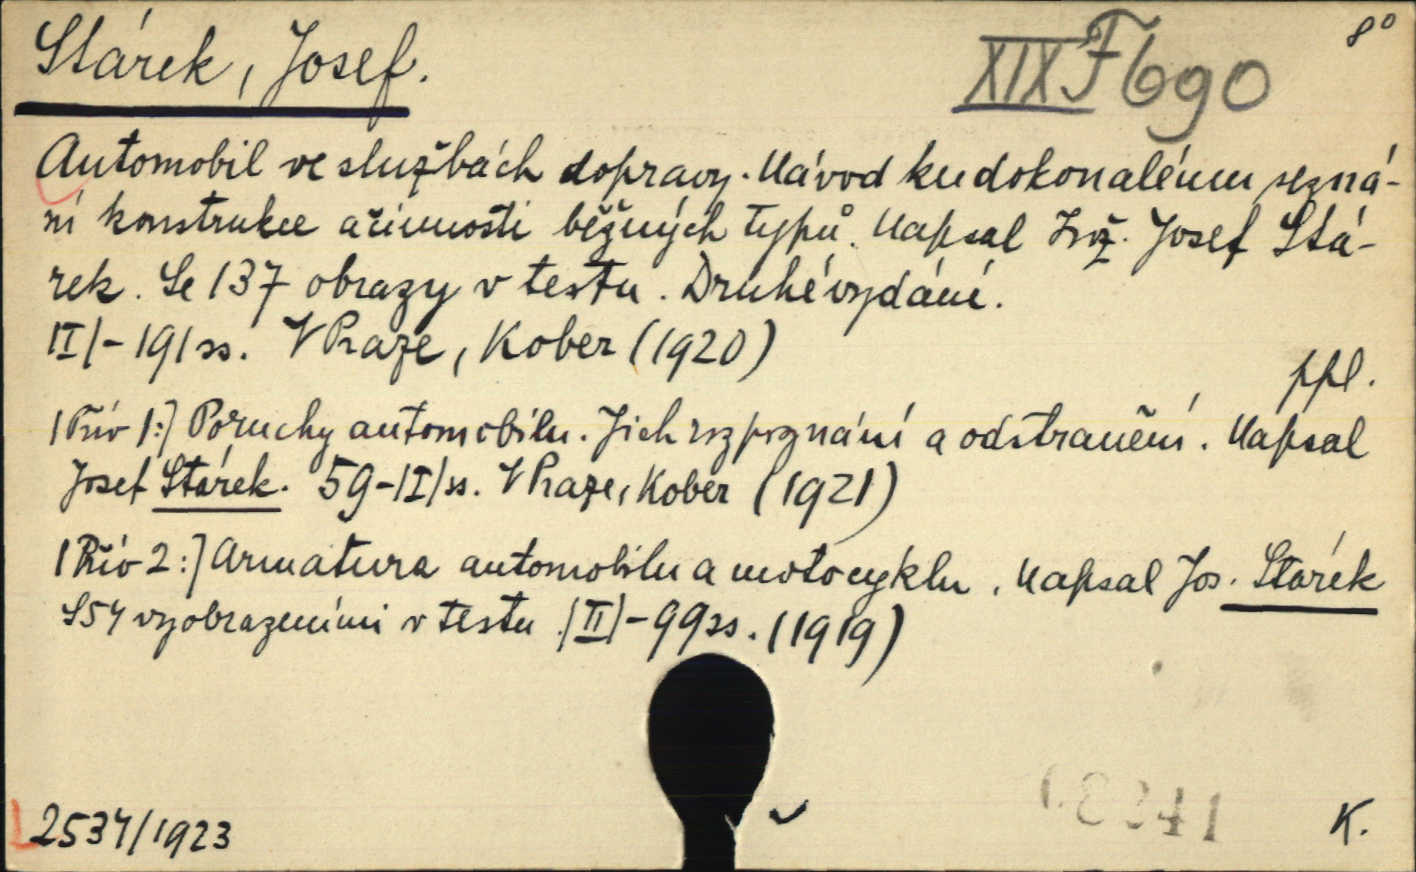 Stárek, Josef.
XIX F 690
8°
Automobil ve službách dopravy. Návod ku dokonalému sezná-
ní konstrukce a činnosti běžných typů. Napsal Inž. Josef Stá-
rek. Se 137 obrazy v textu. Druhé vydání.
II/-191 ss. V Praze, Kober (1920)
ppl.
/Přív 1:/ Poruchy automobilu. Jich rozpoznání a odstranění. Napsal
Josef Stárek. 59-/I/ ss. V Praze, Kober (1921)
/Přív 2:/ Armatura automobilu a motocyklu. Napsal Jos. Stárek
S 54 vyobrazeními v textu. /II/-99 ss. (1919)
2534/1923
K.